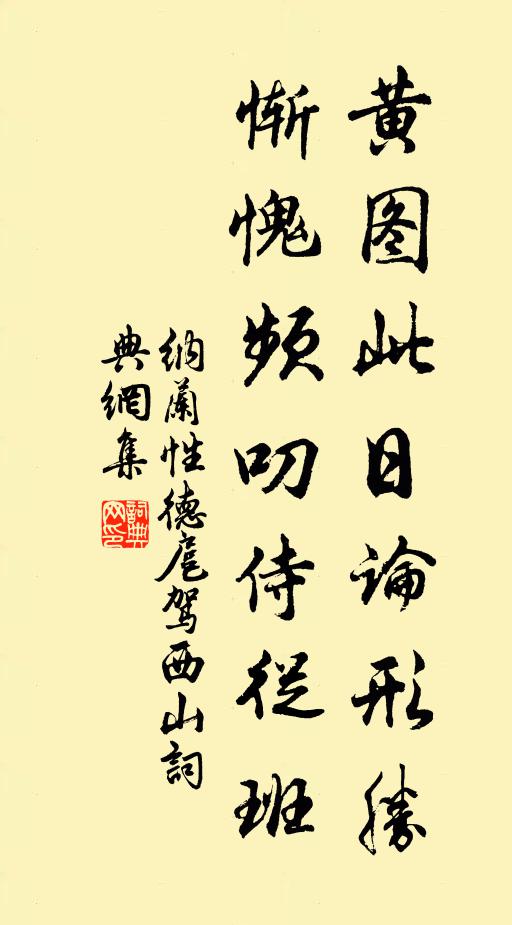 黄图此日论形胜
惭愧频叨侍從班
纳蘭性德扈驾西山詞
典網集
詞典网印